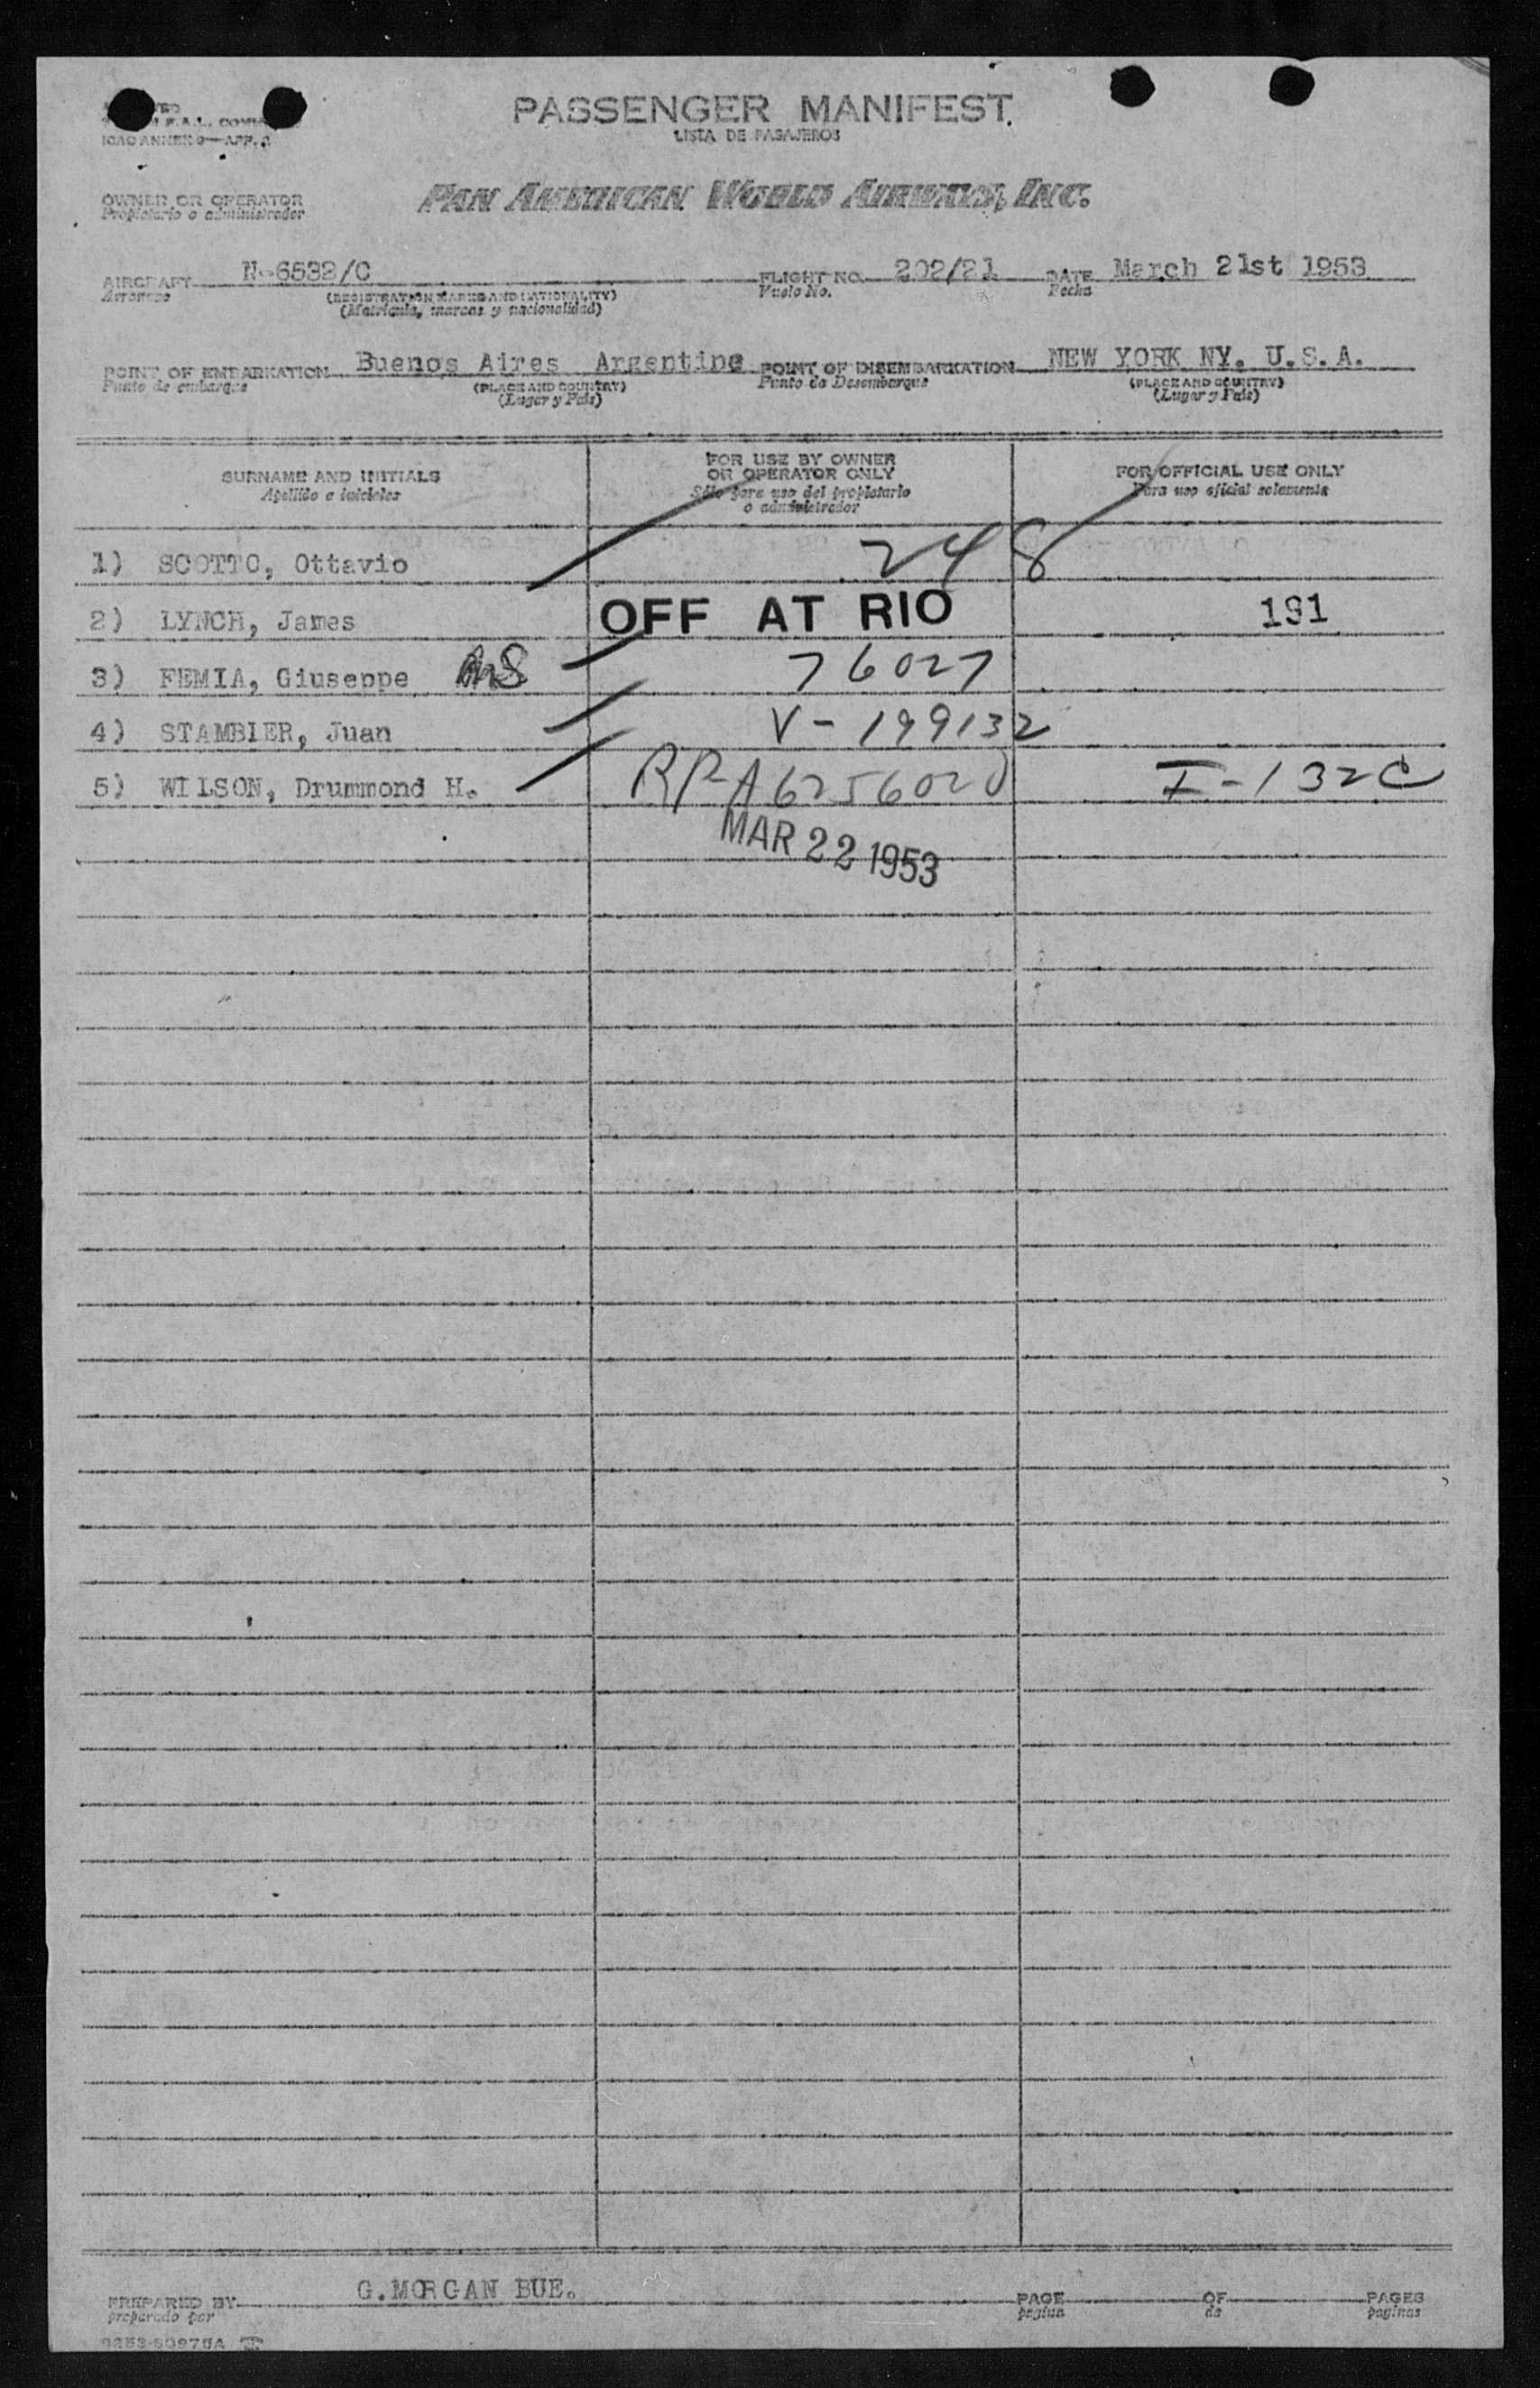 PASSENGER MANIFEST
LISTA DE PASAJEROS
ICAO ANNEX 9—APP. 2
OWNER OR OPERATOR
Propietario o administrador
PAN AMERICAN WORLD AIRWAYS, INC.
AIRCRAFT N-6532/C FLIGHT NO. 202/21 DATE March 21st 1953
Aeronave (REGISTRATION MARKS AND NATIONALITY) Vuelo No. Fecha
(Matrícula, marcas y nacionalidad)
POINT OF EMBARKATION Buenos Aires Argentine POINT OF DISEMBARKATION NEW YORK NY. U.S.A.
Punto de embarque (PLACE AND COUNTRY) Punto de Desembarque (PLACE AND COUNTRY)
(Lugar y País) (Lugar y País)
SURNAME AND INITIALS FOR USE BY OWNER OR OPERATOR ONLY FOR OFFICIAL USE ONLY
Apellido e iniciales Sólo para uso del propietario o administrador Para uso oficial solamente
1) SCOTTO, Ottavio 248
2) LYNCH, James OFF AT RIO 191
3) FEMIA, Giuseppe 76027
4) STAMBLER, Juan V-199132
5) WILSON, Drummond H. RP-A6256020 I-132C
MAR 22 1953
PREPARED BY G.MORGAN BUE. PAGE OF PAGES
preparado por pagina de paginas